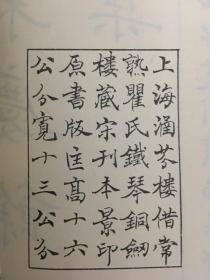 上海涵芬樓借常
熟瞿氏鐵琴銅劒
樓藏宋刊本景印
原書版匡高十六
公分寬十三公分